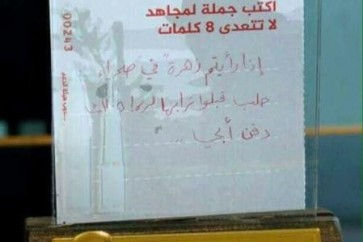 اكتب جملة لمجاهد
لا تتعدى 8 كلمات
إذا رأيتم زهرة في صحراء
حلب قبلوا ترابها
دفن أبي
00243